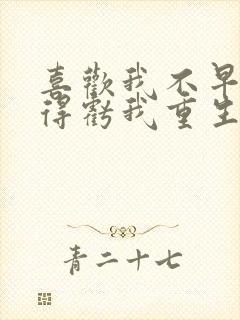 喜歡我不早
得虧我重生
青二十七